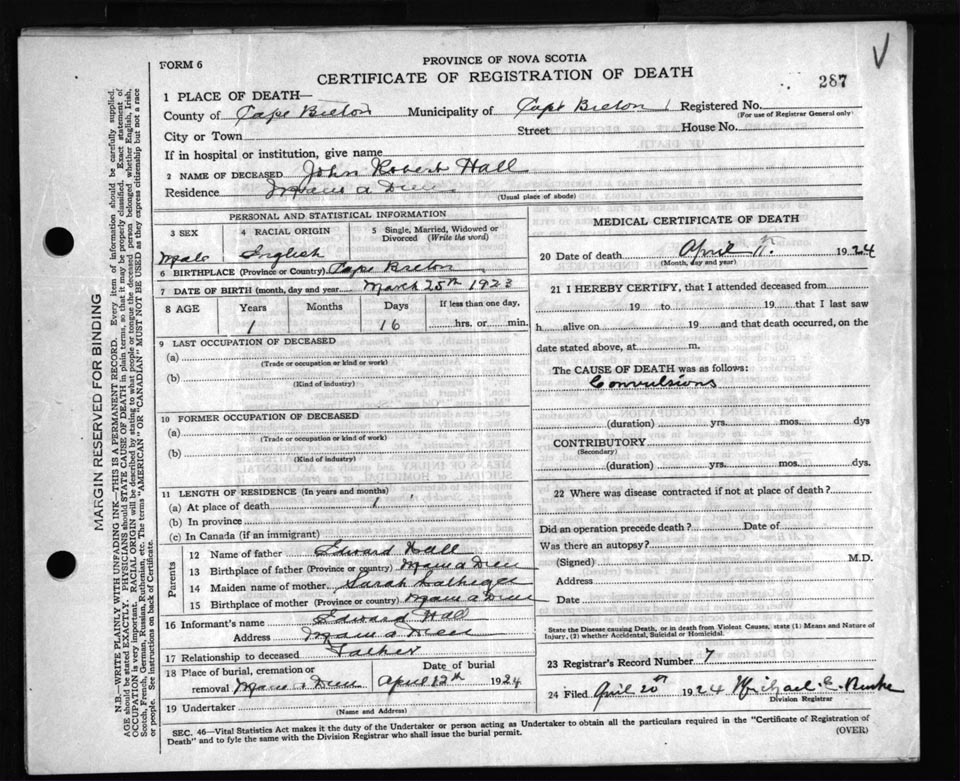 PROVINCE OF NOVA SCOTIA
FORM 6
CERTIFICATE OF REGISTRATION OF DEATH
287
1 PLACE OF DEATH—
County of Cape Breton Municipality of Cape Breton Registered No.
(For use of Registrar General only)
City or Town Street House No.
If in hospital or institution, give name
2 NAME OF DECEASED John Robert Hall
Residence Main a Dieu
(Usual place of abode)
PERSONAL AND STATISTICAL INFORMATION
3 SEX 4 RACIAL ORIGIN 5 Single, Married, Widowed or Divorced (Write the word)
Male English
6 BIRTHPLACE (Province or Country) Cape Breton
7 DATE OF BIRTH (month, day and year) March 25th 1923
8 AGE Years Months Days If less than one day,
1 16 hrs. or min.
9 LAST OCCUPATION OF DECEASED
(a)
(Trade or occupation or kind or work)
(b)
(Kind of industry)
10 FORMER OCCUPATION OF DECEASED
(a)
(Trade or occupation or kind of work)
(b)
(Kind of industry)
11 LENGTH OF RESIDENCE (In years and months)
(a) At place of death 1
(b) In province "
(c) In Canada (if an immigrant)
Parents
12 Name of father Edward Hall
13 Birthplace of father (Province or country) Main a Dieu
14 Maiden name of mother Sarah
15 Birthplace of mother (Province or country) Main a Dieu
16 Informant's name Edward Hall
Address Main a Dieu
17 Relationship to deceased Father
18 Place of burial, cremation or removal Main a Dieu Date of burial April 12th 1924
19 Undertaker
(Name and Address)
MEDICAL CERTIFICATE OF DEATH
20 Date of death April 11th 1924
(Month, day and year)
21 I HEREBY CERTIFY, that I attended deceased from
19 to 19 that I last saw
h alive on 19 and that death occurred, on the
date stated above, at m.
The CAUSE OF DEATH was as follows:
Convulsions
(duration) yrs. mos. dys
CONTRIBUTORY
(Secondary)
(duration) yrs. mos. dys.
22 Where was disease contracted if not at place of death?
Did an operation precede death? Date of
Was there an autopsy?
(Signed) M.D.
Address
Date
State the Disease causing Death, or in death from Violent Causes, state (1) Means and Nature of
Injury, (2) whether Accidental, Suicidal or Homicidal.
23 Registrar's Record Number 7
24 Filed April 20th 1924 Michael
Division Registrar
SEC. 46—Vital Statistics Act makes it the duty of the Undertaker or person acting as Undertaker to obtain all the particulars required in the "Certificate of Registration of
Death" and to fyle the same with the Division Registrar who shall issue the burial permit.
(OVER)
MARGIN RESERVED FOR BINDING
N.B.—WRITE PLAINLY WITH UNFADING INK—THIS IS A PERMANENT RECORD. Every item of information should be carefully supplied.
AGE should be stated EXACTLY. PHYSICIANS should STATE CAUSE OF DEATH in plain terms, so that it may be properly classified. Exact statement of
OCCUPATION is very important. RACIAL ORIGIN will be described by stating to what people or tongue the deceased person belonged, whether English, Irish,
Scotch, French, German, Russian, Ruthenian, etc. The terms "AMERICAN" OR "CANADIAN" MUST NOT BE USED as they express citizenship but not a race
or people. See instructions on back of Certificate.